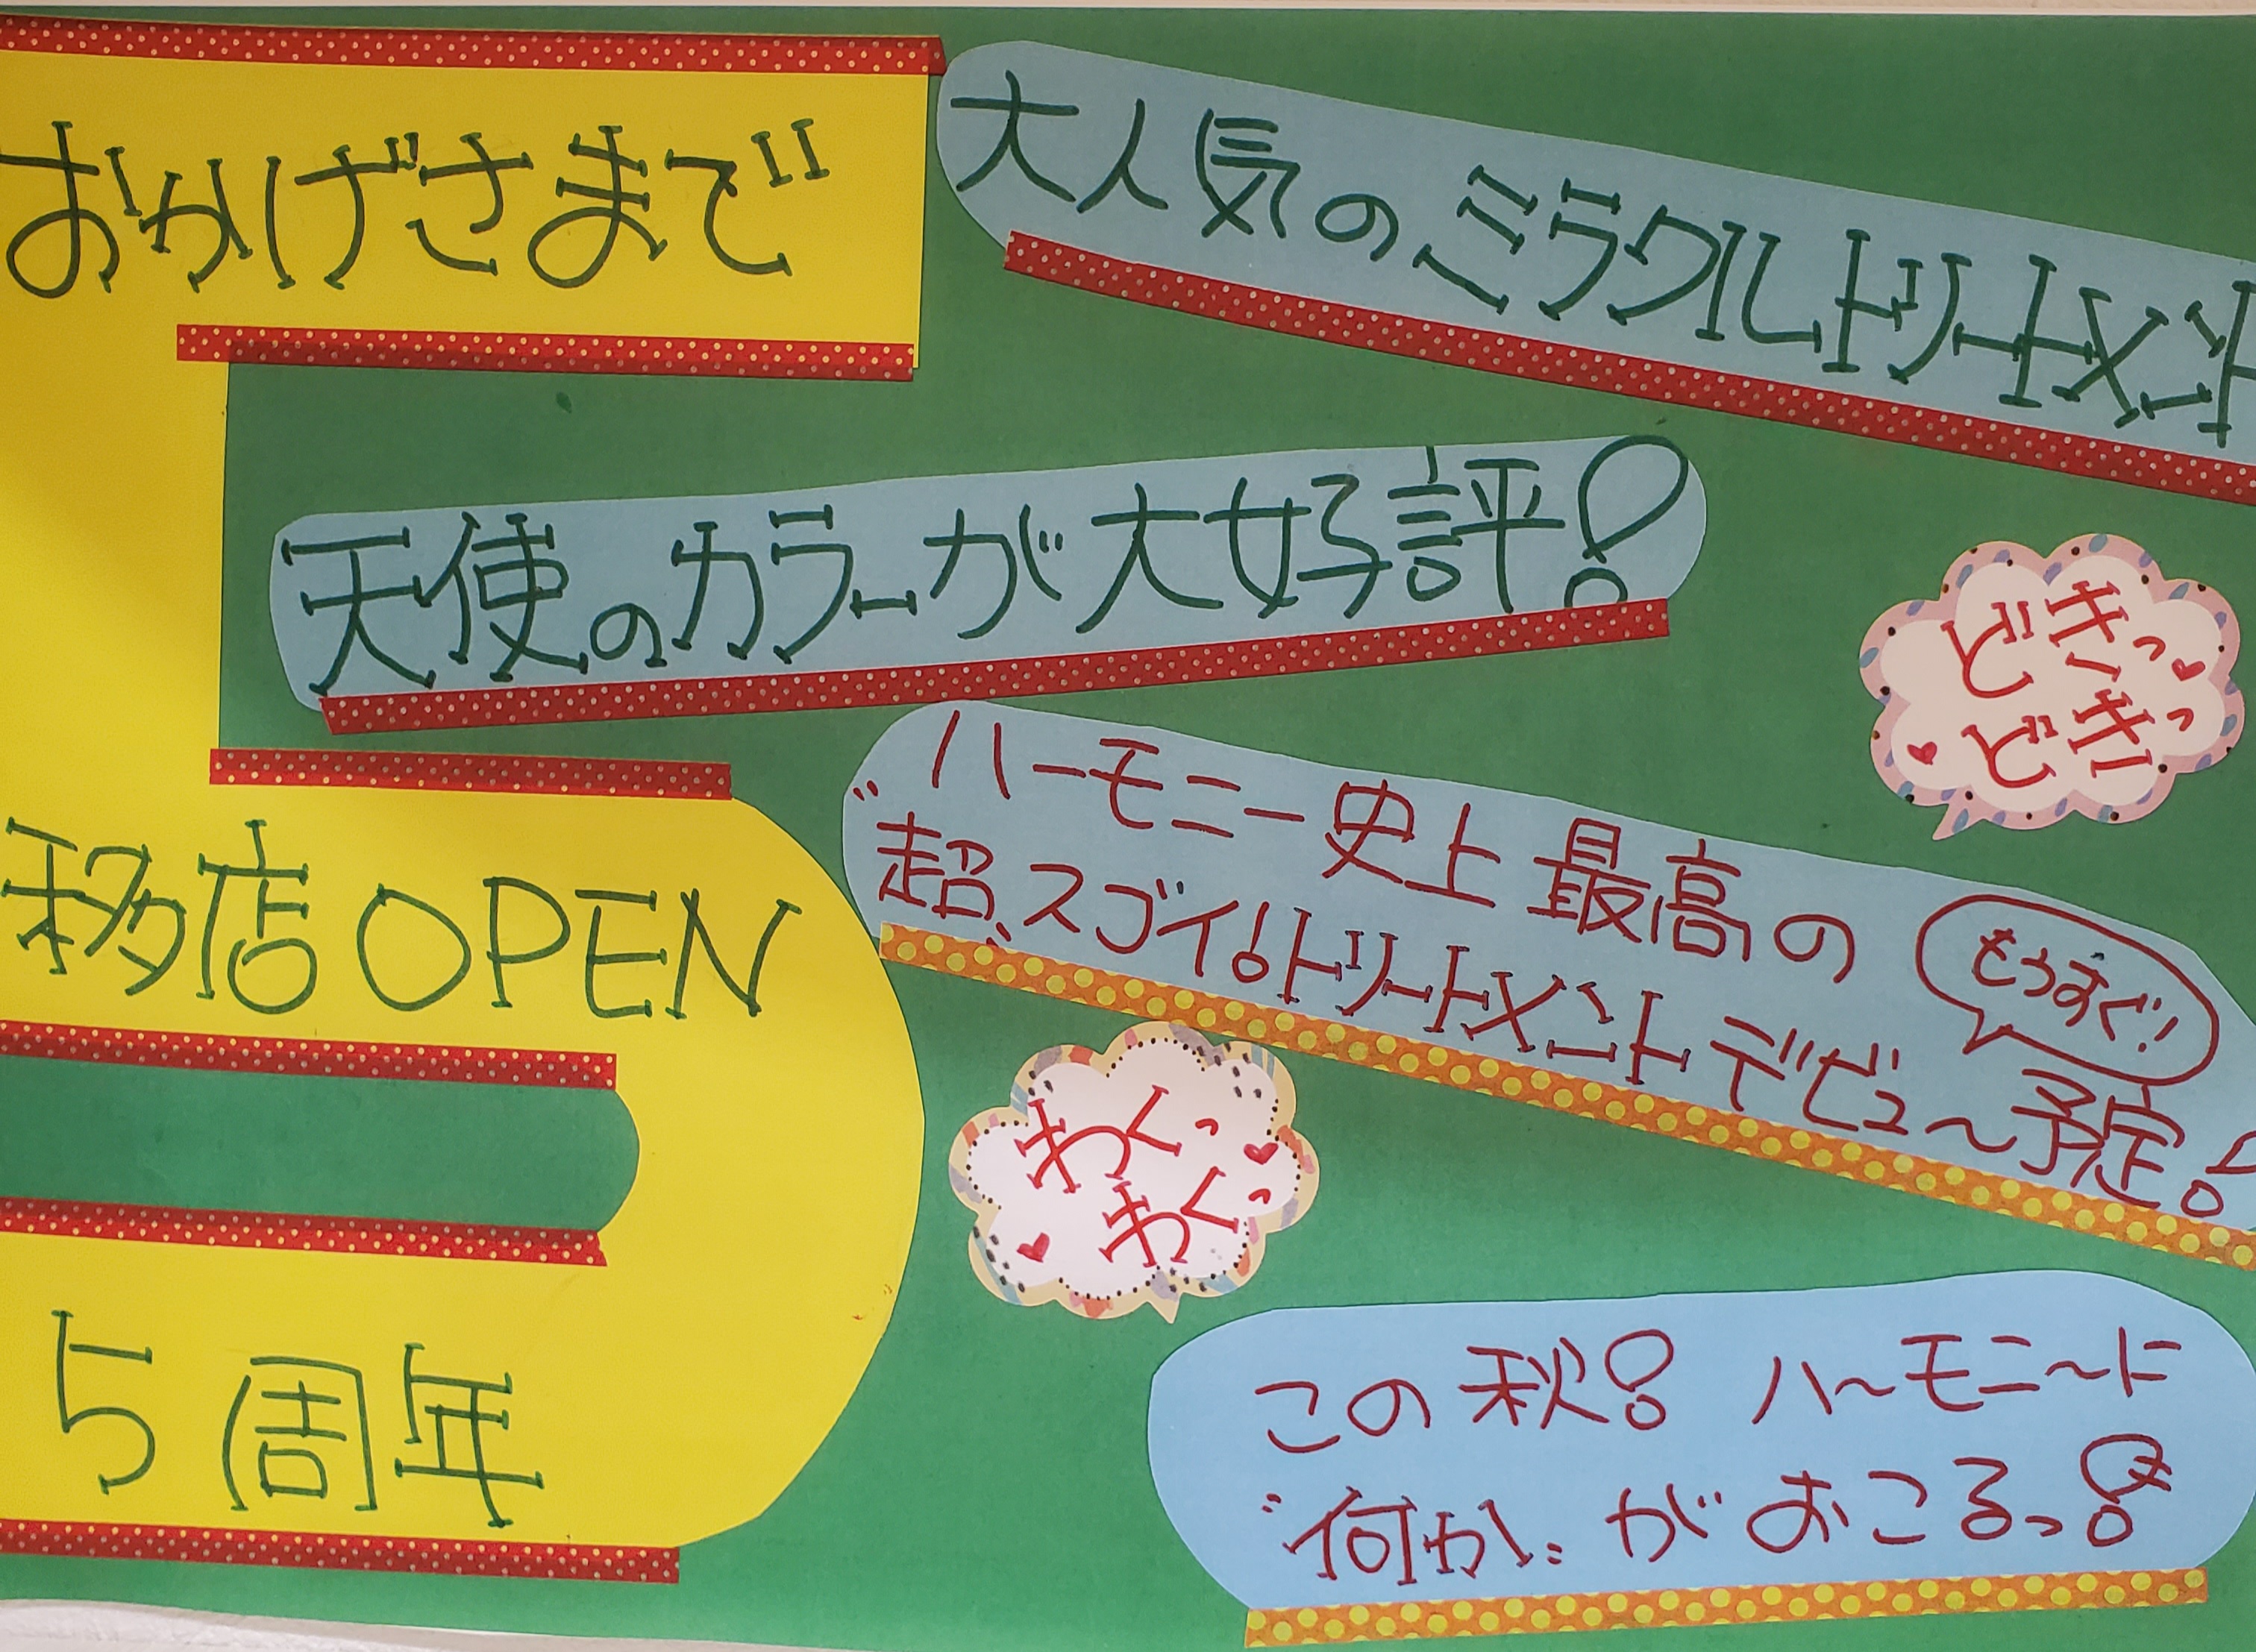 おかげさまで
移店OPEN
5周年
大人気のミラクルトリートメント
天使のカラーが大好評!
どきっ
どきっ
ハーモニー史上最高の
"超"スゴイ!トリートメントデビュ〜予定!
もうすぐ!
わくっ
わくっ
この秋! ハ〜モニ〜に
"何か"がおこるっ!